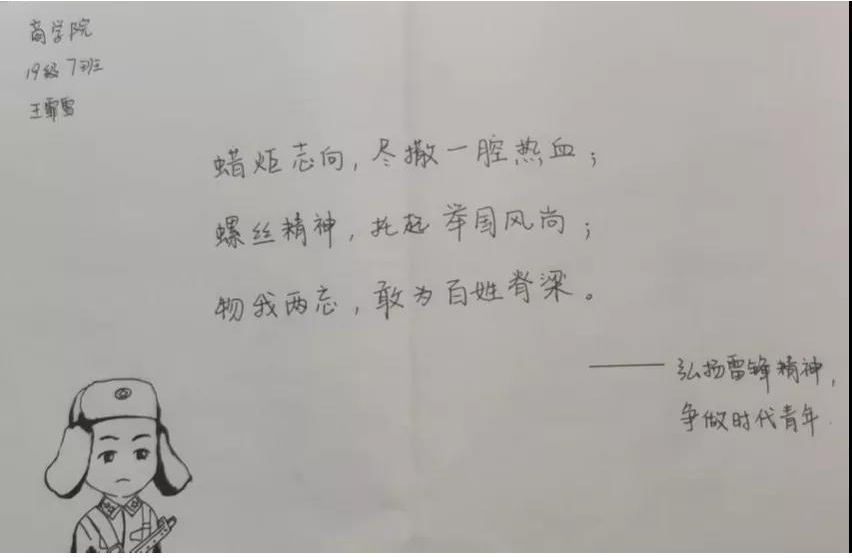 商学院
19级7班
王霏雪
蜡炬志向，尽撒一腔热血；
螺丝精神，托起举国风尚；
物我两忘，敢为百姓脊梁。
——弘扬雷锋精神，
争做时代青年.